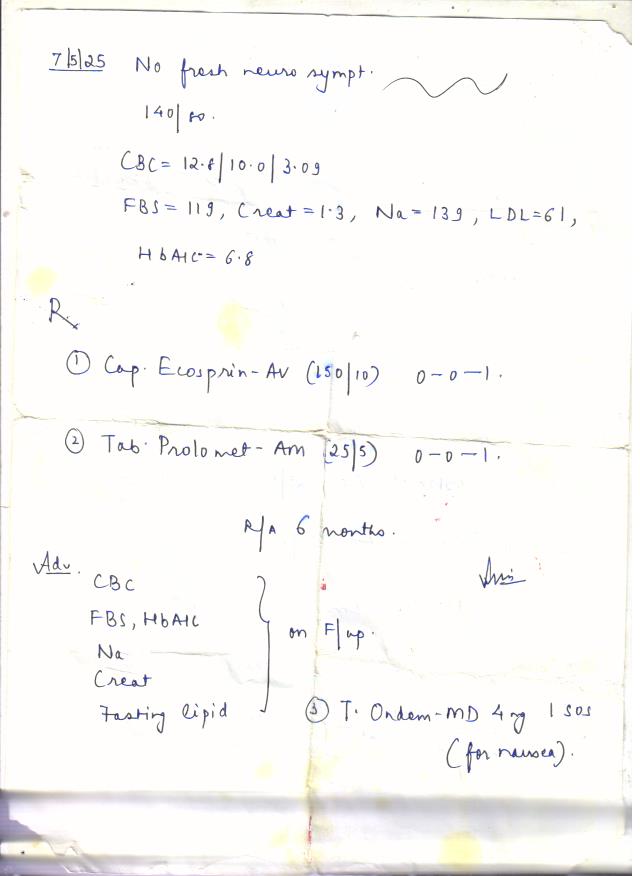 7/5/25 No fresh neuro sympt.
140/80.
CBC = 12.8/10.0/3.09
FBS = 119, Creat = 1.3, Na = 139, LDL = 61,
HbA1C = 6.8
Rx
① Cap. Ecosprin-AV (150/10) 0-0-1.
② Tab. Prolomet-Am (25/5) 0-0-1.
R/A 6 months.
Adv.
CBC
FBS, HbA1C
Na
Creat
Fasting lipid
on F/up.
③ T. Ondem-MD 4 mg 1 SOS
(for nausea).